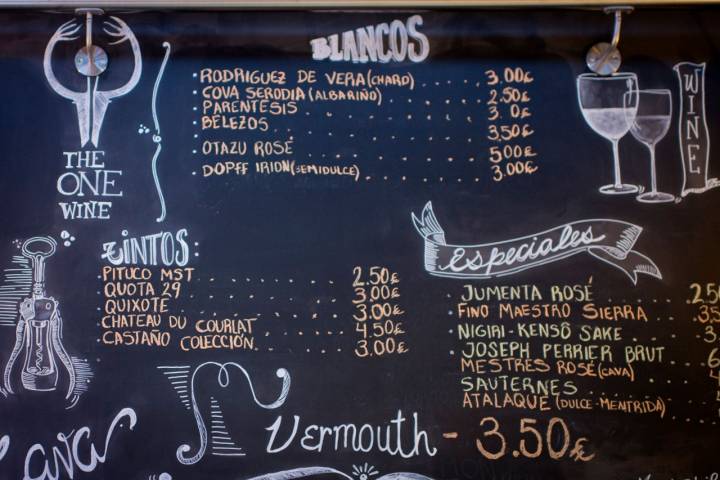 BLANCOS
• RODRIGUEZ DE VERA (CHARD) . . . . . 3.00€
• COVA SERODIA (ALBARIÑO) . . . . . 2.50€
• PARENTESIS . . . . . 3.0€
• BELEZOS . . . . . 3,50€
• OTAZU ROSÉ . . . . . 5,00€
• DOPFF IRION (SEMIDULCE) . . . . . 3.00€
WINE
THE
ONE
WINE
TINTOS:
• PITUCO MST . . . . . 2.50€
• QUOTA 29 . . . . . 3.00€
• QUIXOTE . . . . . 3.00€
• CHATEAU DU COURLAT . . . . . 4,50€
• CASTAÑO COLECCIÓN . . . . . 3.00€
Especiales
• JUMENTA ROSÉ . . . . . 2.50
• FINO MAESTRO SIERRA . . . . .
• NIGIRI-KENSÔ SAKE . . . . . 3.
• JOSEPH PERRIER BRUT
• MESTRES ROSÉ (CAVA)
• SAUTERNES
• ATALAQUE (DULCE-MENTRIDA)
Cava
Vermouth - 3.50€